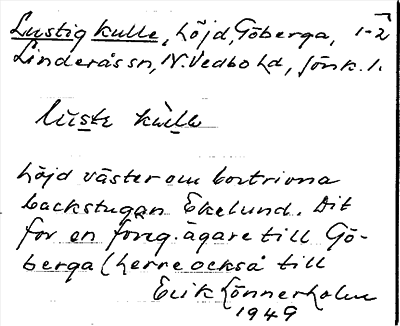 Lustig kulle, höjd, Göberga, 1-2
Linderås sn, N. Vedbo hd, Jönk. l.
lùste kùlle
höjd väster om bortrivna
backstugan Ekelund. Dit
for en föreg. ägare till Gö-
berga (herre också till
Erik Lönnerholm
1949